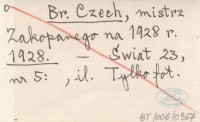 Br. Czech, mistrz
Zakopanego na 1928 r.
1928. – Świat 23,
nr 5: , il. Tylko fot.
BT 1006/0967